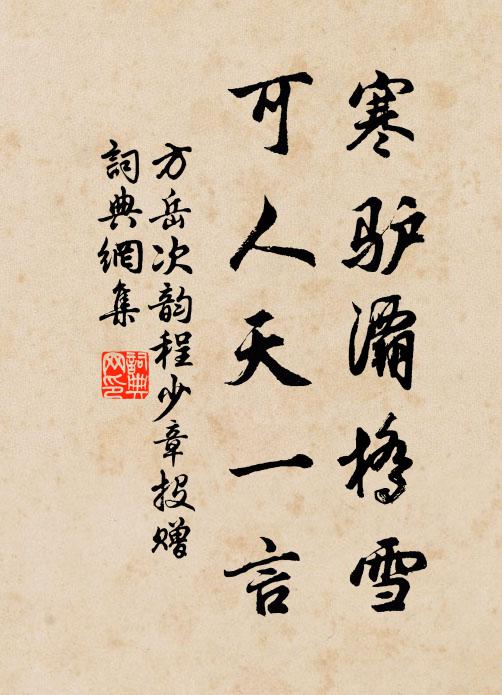 寒驴灞橋雪
可人天一言
方岳次韵程少章投赠
詞典網集
詞典網印